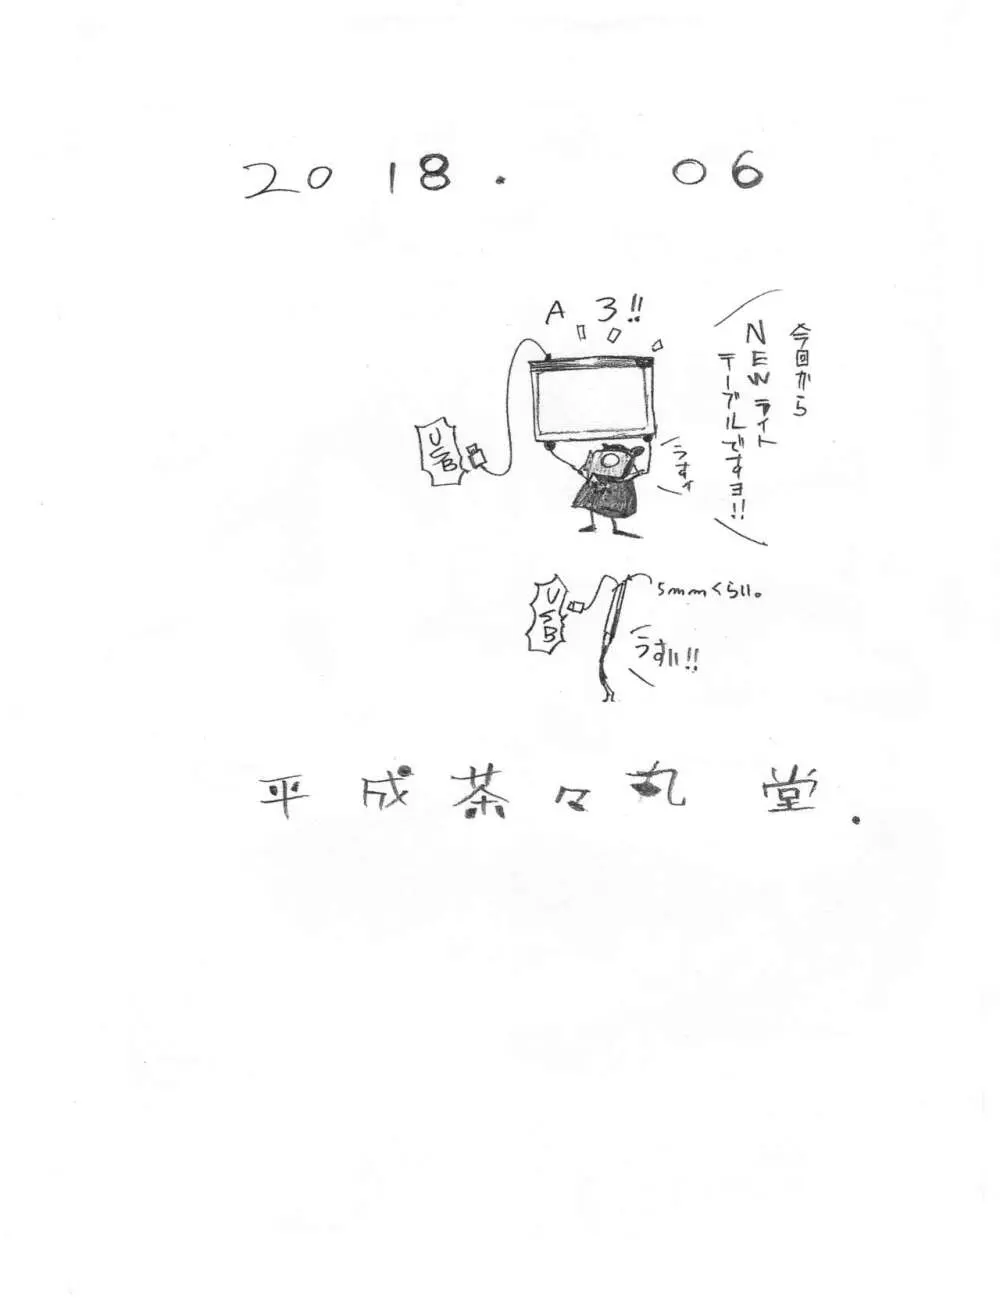 2018. 06
A3!!
今回から
NEWライト
テーブルですョ!!
USB
うすィ
USB
5mmくらい。
うすい!!
平成茶々丸堂.